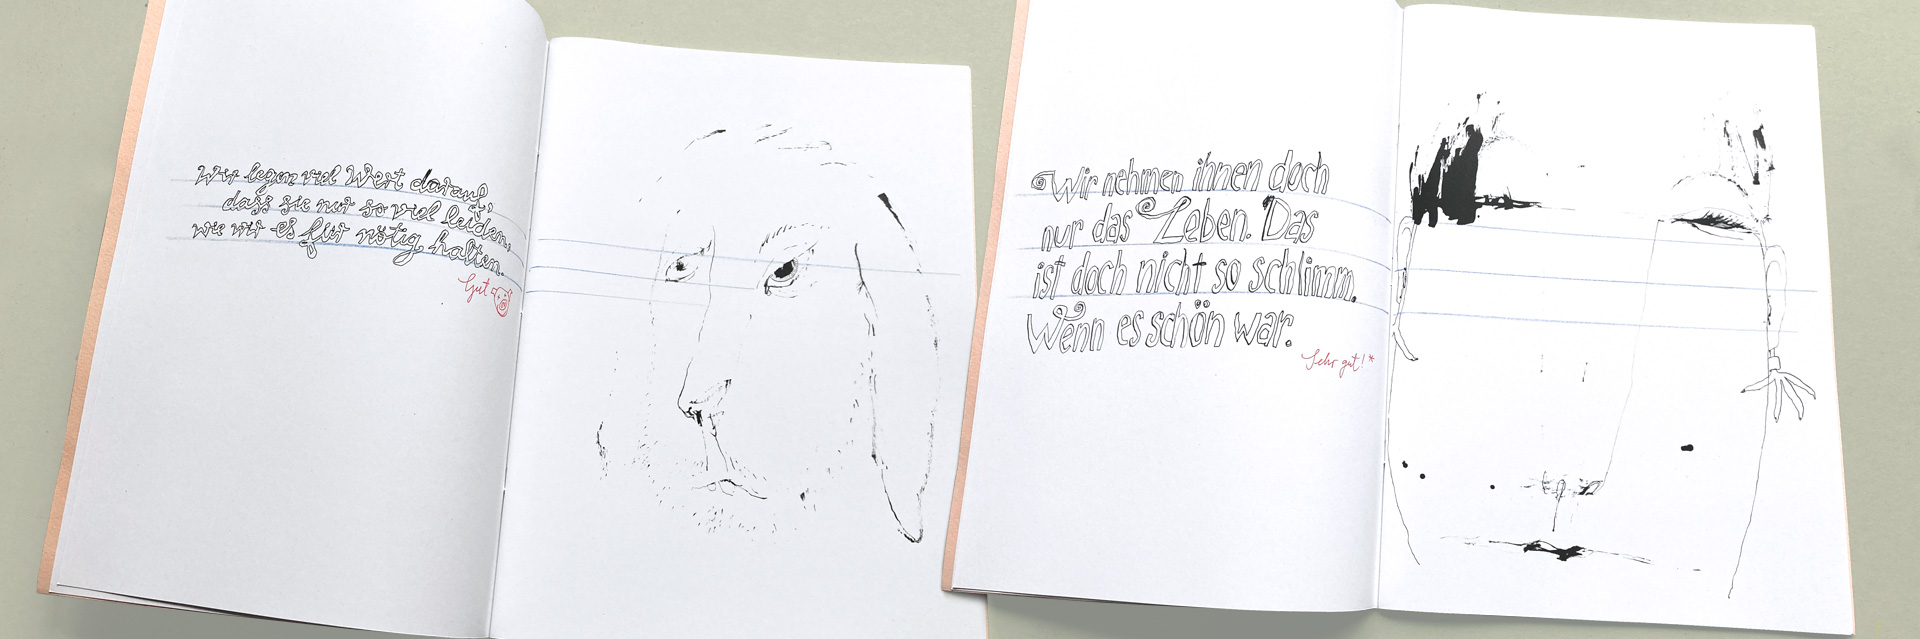 Wir legen viel Wert darauf,
dass sie nur so viel leiden,
wie wir es für nötig halten.
Gut
Wir nehmen ihnen doch
nur das Leben. Das
ist doch nicht so schlimm.
Wenn es schön war.
Sehr gut!*